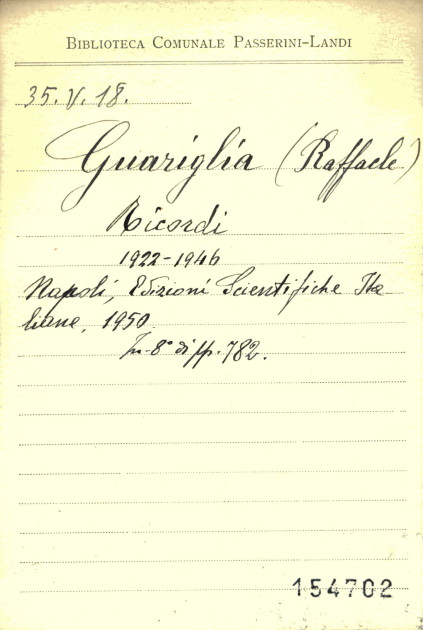 BIBLIOTECA COMUNALE PASSERINI-LANDI
35.V.18.
Guariglia (Raffaele)
Ricordi
1922-1946
Napoli, Edizioni Scientifiche Ita
liane, 1950
In-8° di pp. 782.
154702